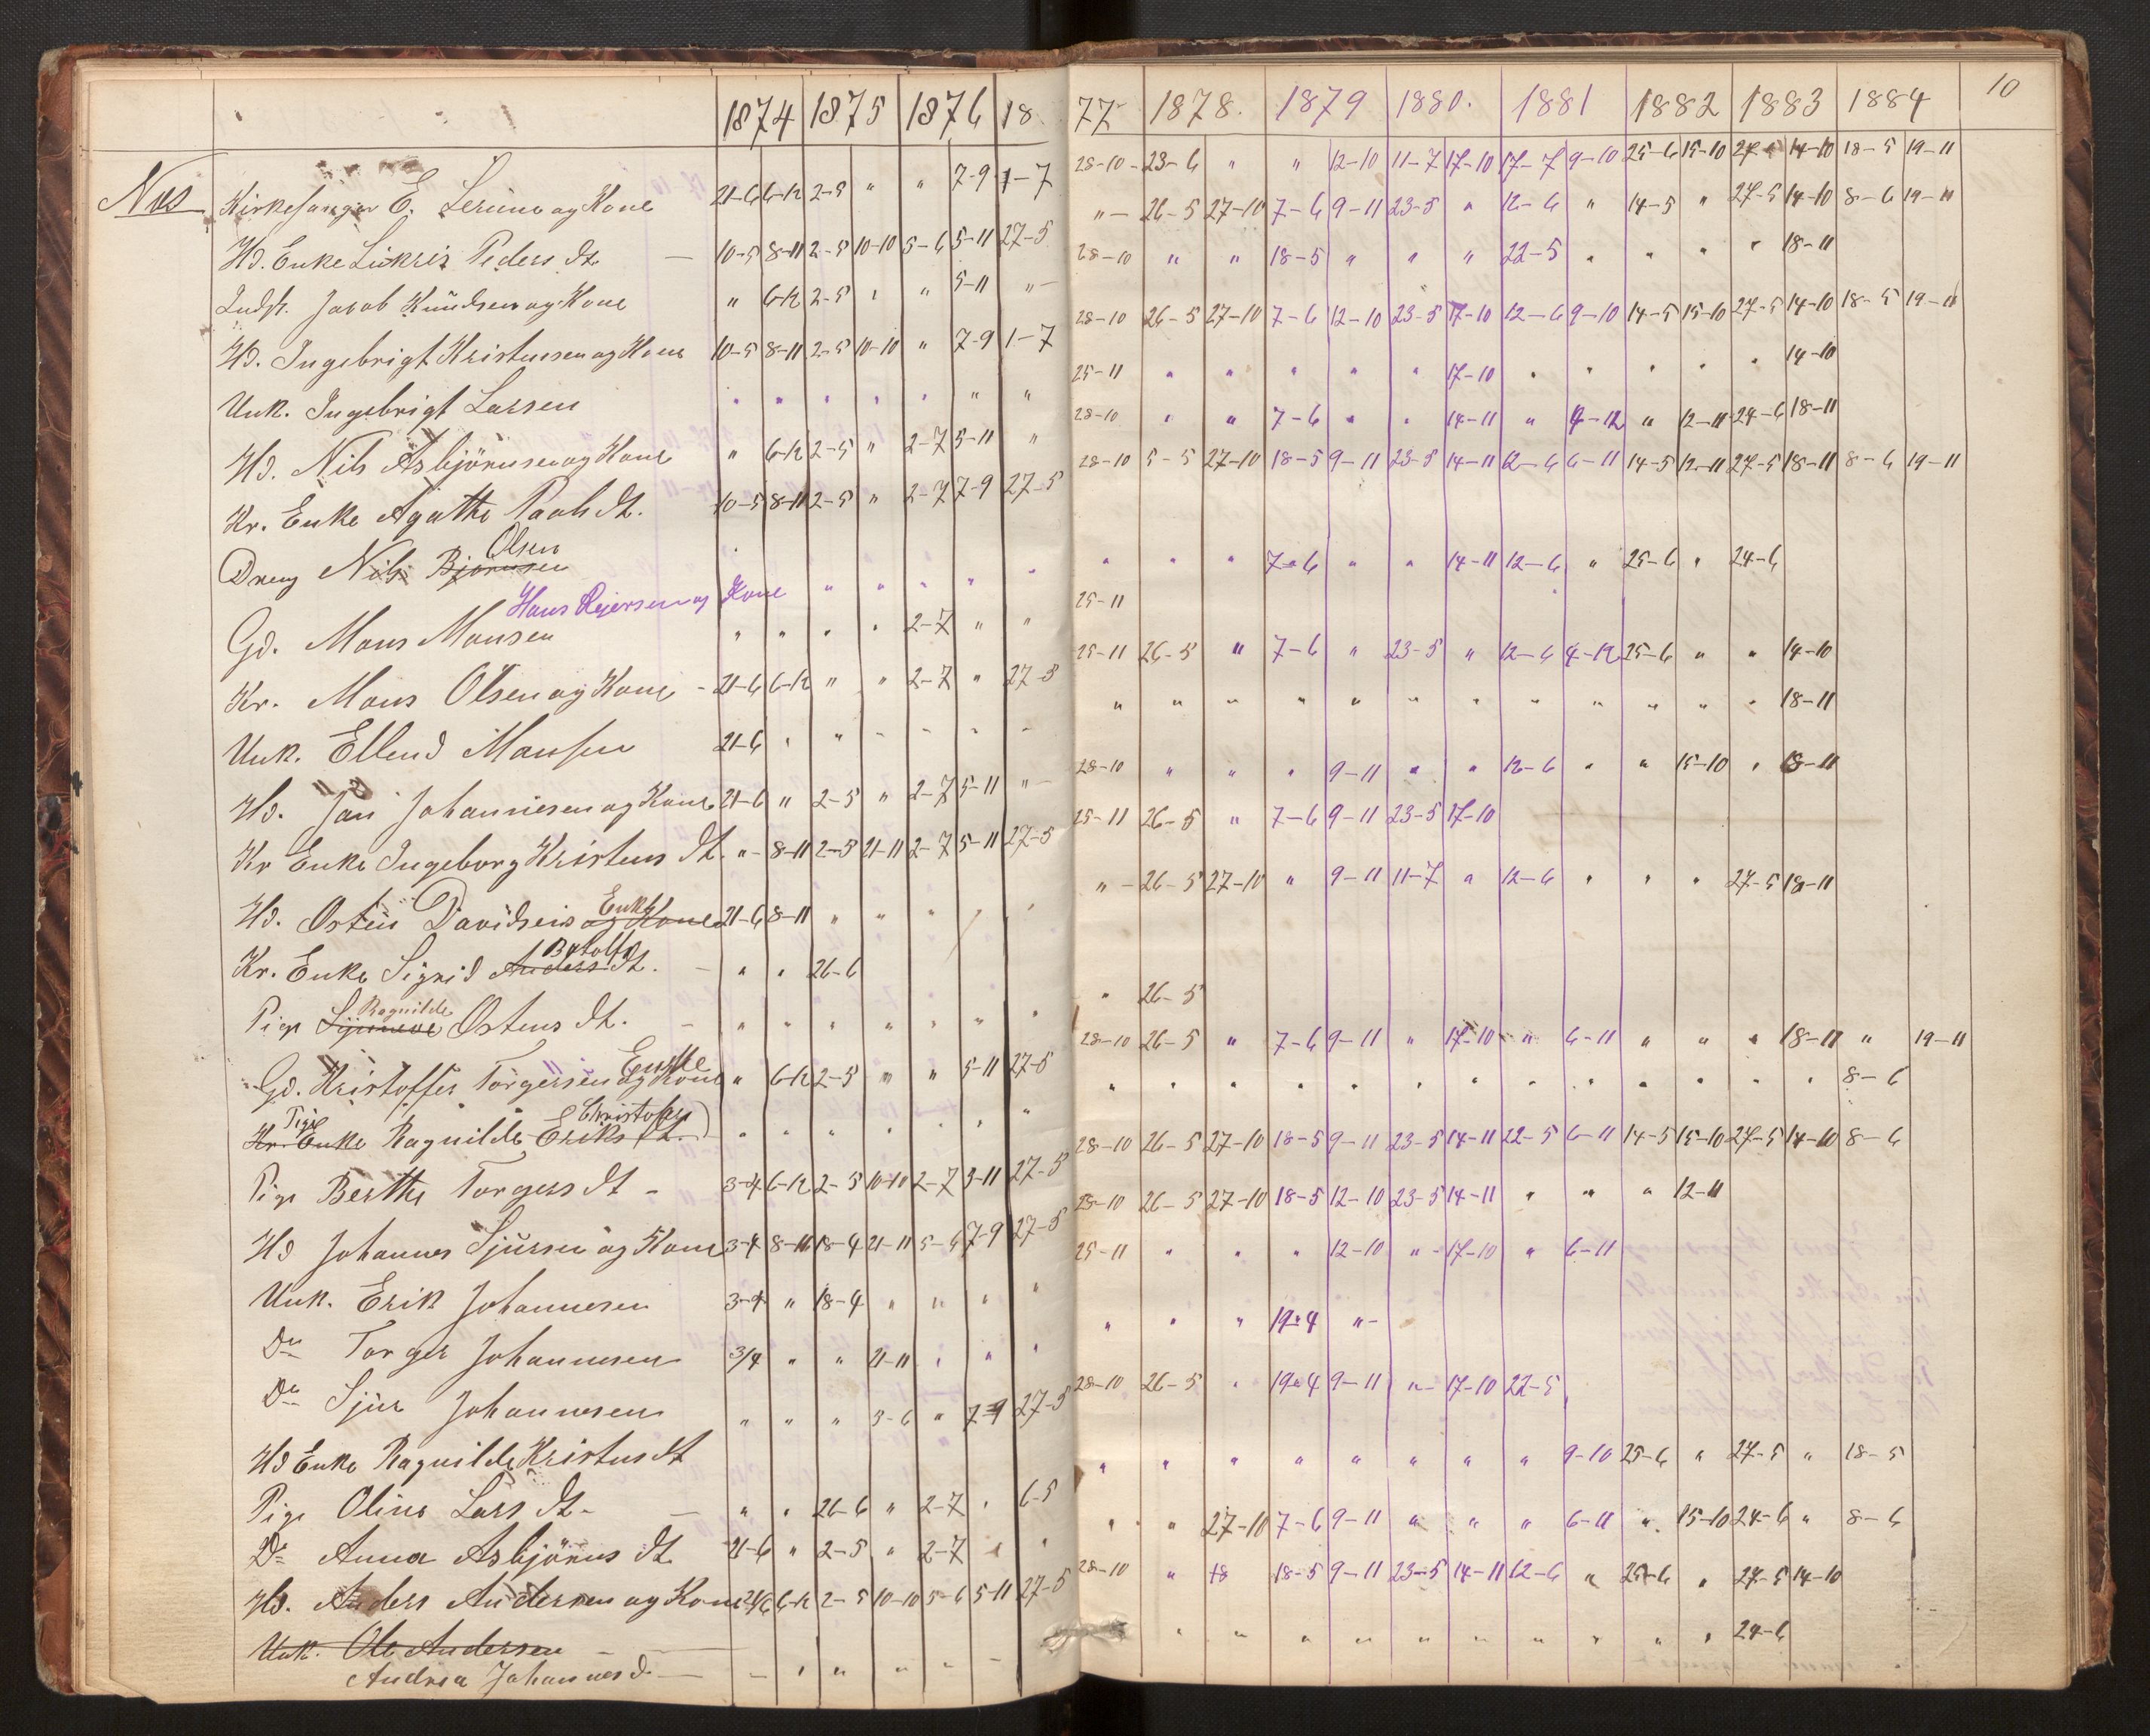 10
1874 1875 1876 18 77 1878. 1879 1880. 1881 1882 1883 1884
Næs Kirkesanger E. og Kone 21-6 6-12 2-5 " " 7-9 1-7 28-10 23-6 " " 12-10 11-7 17-10 17-7 9-10 25-6 15-10 27-5 14-10 18-5 19-11
Hd. Enke Peders dt. 10-5 8-11 2-5 10-10 5-6 5-11 27-5 " 26-5 27-10 7-6 9-11 23-5 " 12-6 " 14-5 " 27-5 14-10 8-6 19-11
Indst. Jacob Knudsen og Kone " 6-12 2-5 " " 5-11 " 28-10 " " 18-5 " " " 22-5 " " " " 18-11
Hd. Ingebrigt Kristensen og Kone 10-5 8-11 2-5 10-10 " 7-9 1-7 28-10 26-5 27-10 7-6 12-10 23-5 17-10 12-6 9-10 14-5 15-10 27-5 14-10 18-5 19-11
Unk. Ingebrigt Larsen " " " " " " " 25-11 " " " " " 17-10 " " " " " 14-10
Hd. Nils Asbjörnsen og Kone " 6-12 2-5 " 2-7 5-11 " 28-10 " " 7-6 " " 14-11 " 4-12 " 12-11 24-6 18-11
Kr. Enke Agathe Pauls dt. 10-5 8-11 2-5 " 2-7 7-9 27-5 28-10 5-5 27-10 18-5 9-11 23-5 14-11 12-6 6-11 14-5 12-11 27-5 18-11 8-6 19-11
Olsen
Dreng Nils Björnsen " " " " " " " " " " 7-6 " " 14-11 12-6 " 25-6 " 24-6
Hans Reiersen og Kone 25-11
Gd. Mons Monsen " " " " 2-7 " " 25-11 26-5 " 7-6 " 23-5 " 12-6 4-12 25-6 " " 14-10
Kr. Mons Olsen og Kone 21-6 6-12 " " 2-7 " 27-5 " " " " " " " " " " " " 18-11
Unk. Ellend Monsen 21-6 " " " " " "
Hd. Jan Johannesen og Kone 21-6 " 2-5 " 2-7 5-11 " 28-10 " " " 9-11 " " 12-6 " " 15-10 " 18-11
Kr Enke Ingeborg Kristens dt. " 8-11 2-5 21-11 2-7 5-11 27-5 25-11 26-5 " 7-6 9-11 23-5 17-10
Enke
Hd. Osten Davidsens og Kone 21-6 8-11 " " " " " " 26-5 27-10 " 9-11 11-7 " 12-6 " " " 27-5 18-11
Batolfs
Kr. Enke Sigrid Anders dt. " " 26-6
Ragnilde
Pige Ostens dt. " " " " " " " " 26-5
Enke
Gd. Kristoffer Torgersen og Kone " 6-12 2-5 " " 5-11 27-5 28-10 26-5 " 7-6 9-11 " 17-10 " 6-11 " " " 18-11 " 19-11
Pige Christofers
Kr. Enke Ragnilde Eriks dt. " " " " " " " " " " " " " " " " " " " " 8-6
Pige Berthe Torgers dt 3-4 6-12 2-5 10-10 2-7 5-11 27-5 28-10 26-5 27-10 18-5 9-11 23-5 14-11 22-5 6-11 14-5 15-10 27-5 14-10 8-6
Hd Johannes Sjursen og Kone 3-4 8-11 18-4 21-11 5-6 7-9 27-5 28-10 26-5 27-10 18-5 12-10 23-5 14-11 " " " 12-11
Unk. Erik Johannesen 3-4 " 18-4 " " " " 25-11 " " " 12-10 " 17-10 " 6-11
Do Torger Johannesen 3/4 " " 21-11 " " " " " " 19-4 "
Do Sjur Johannesen " " " 3-6 " 7-9 27-5 28-10 26-5 " 19-4 9-11 " 17-10 22-5
Hd Enke Ragnilde Kristens dt " " " " " " " " 9-10 25-6 " 27-5 " 18-5
Pige Oline Lars dt " " 26-6 " 2-7 " 6-5 " " 27-10 7-6 9-11 " " " 6-11 " 15-10 24-6 " 8-6
Do Anna Asbjörns dt. 21-6 " 2-5 " 2-7 " "
Hd. Anders Andersen og Kone 21/6 6-12 2-5 10-10 5-6 5-11 27-5 28-10 " 18 18-5 9-11 23-5 14-11 12-6 " 25-6 " 27-5 14-10
Unk. Ole Andersen
Andrea Johannesd. " " " " " " " " " " " " " 24-6